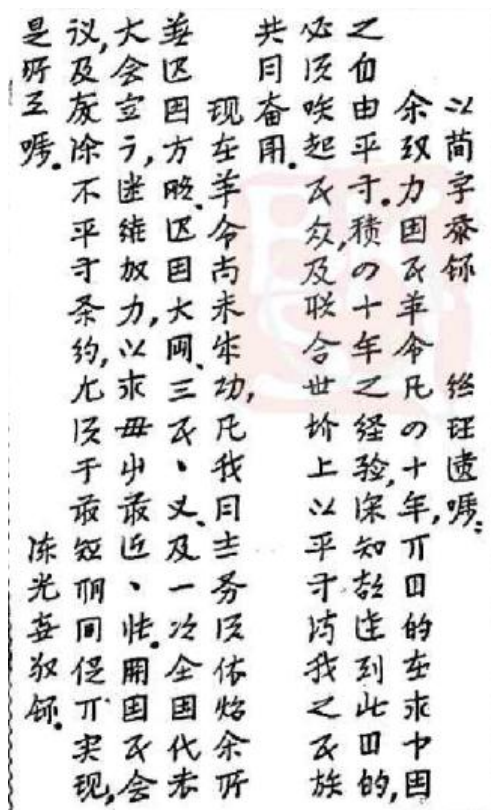 以简字恭录 总理遗嘱:
余致力国民革命凡四十年,其目的在求中国
之自由平等.积四十年之经验,深知欲达到此目的,
必须唤起民众,及联合世界上以平等待我之民族
共同奋斗.
现在革命尚未成功,凡我同志务须依照余所
著建国方略、建国大纲、三民主义、及第一次全国代表
大会宣言,继续努力,以求贯彻最近主张.开国民会
议,及废除不平等条约,尤须于最短期间促其实现,
是所至嘱. 陈光垚敬录.